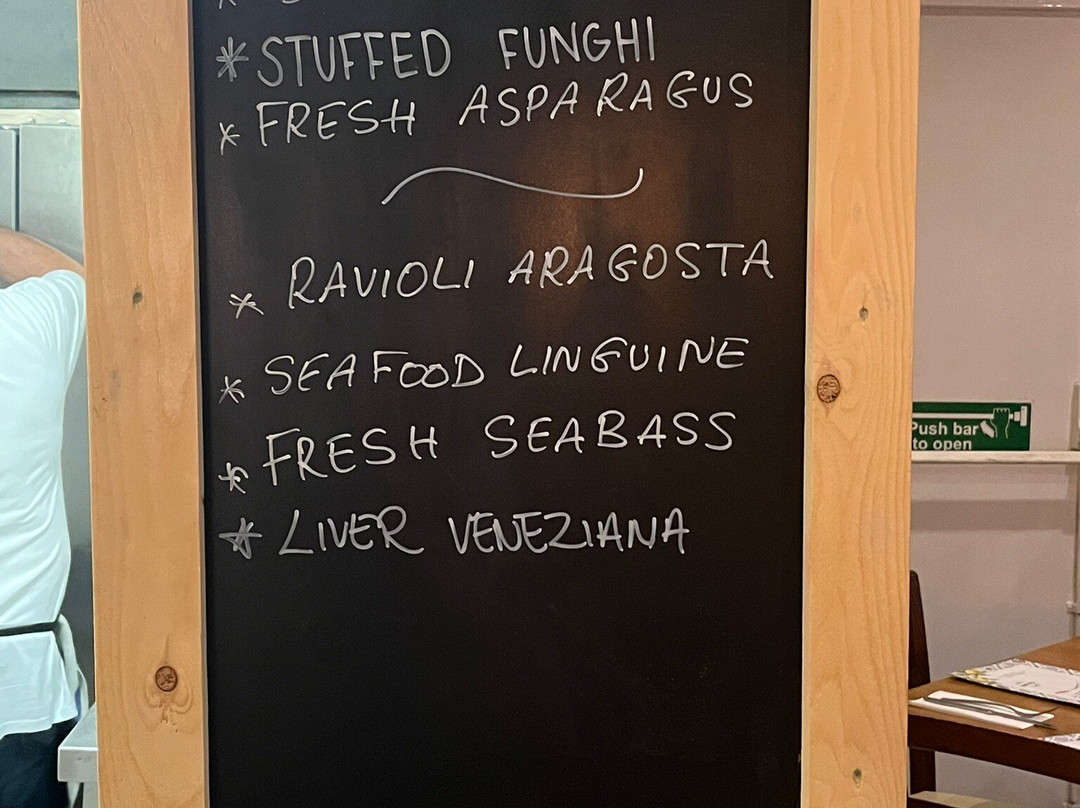 * STUFFED FUNGHI
* FRESH ASPARAGUS
* RAVIOLI ARAGOSTA
* SEAFOOD LINGUINE
* FRESH SEABASS
* LIVER VENEZIANA
Push bar
to open